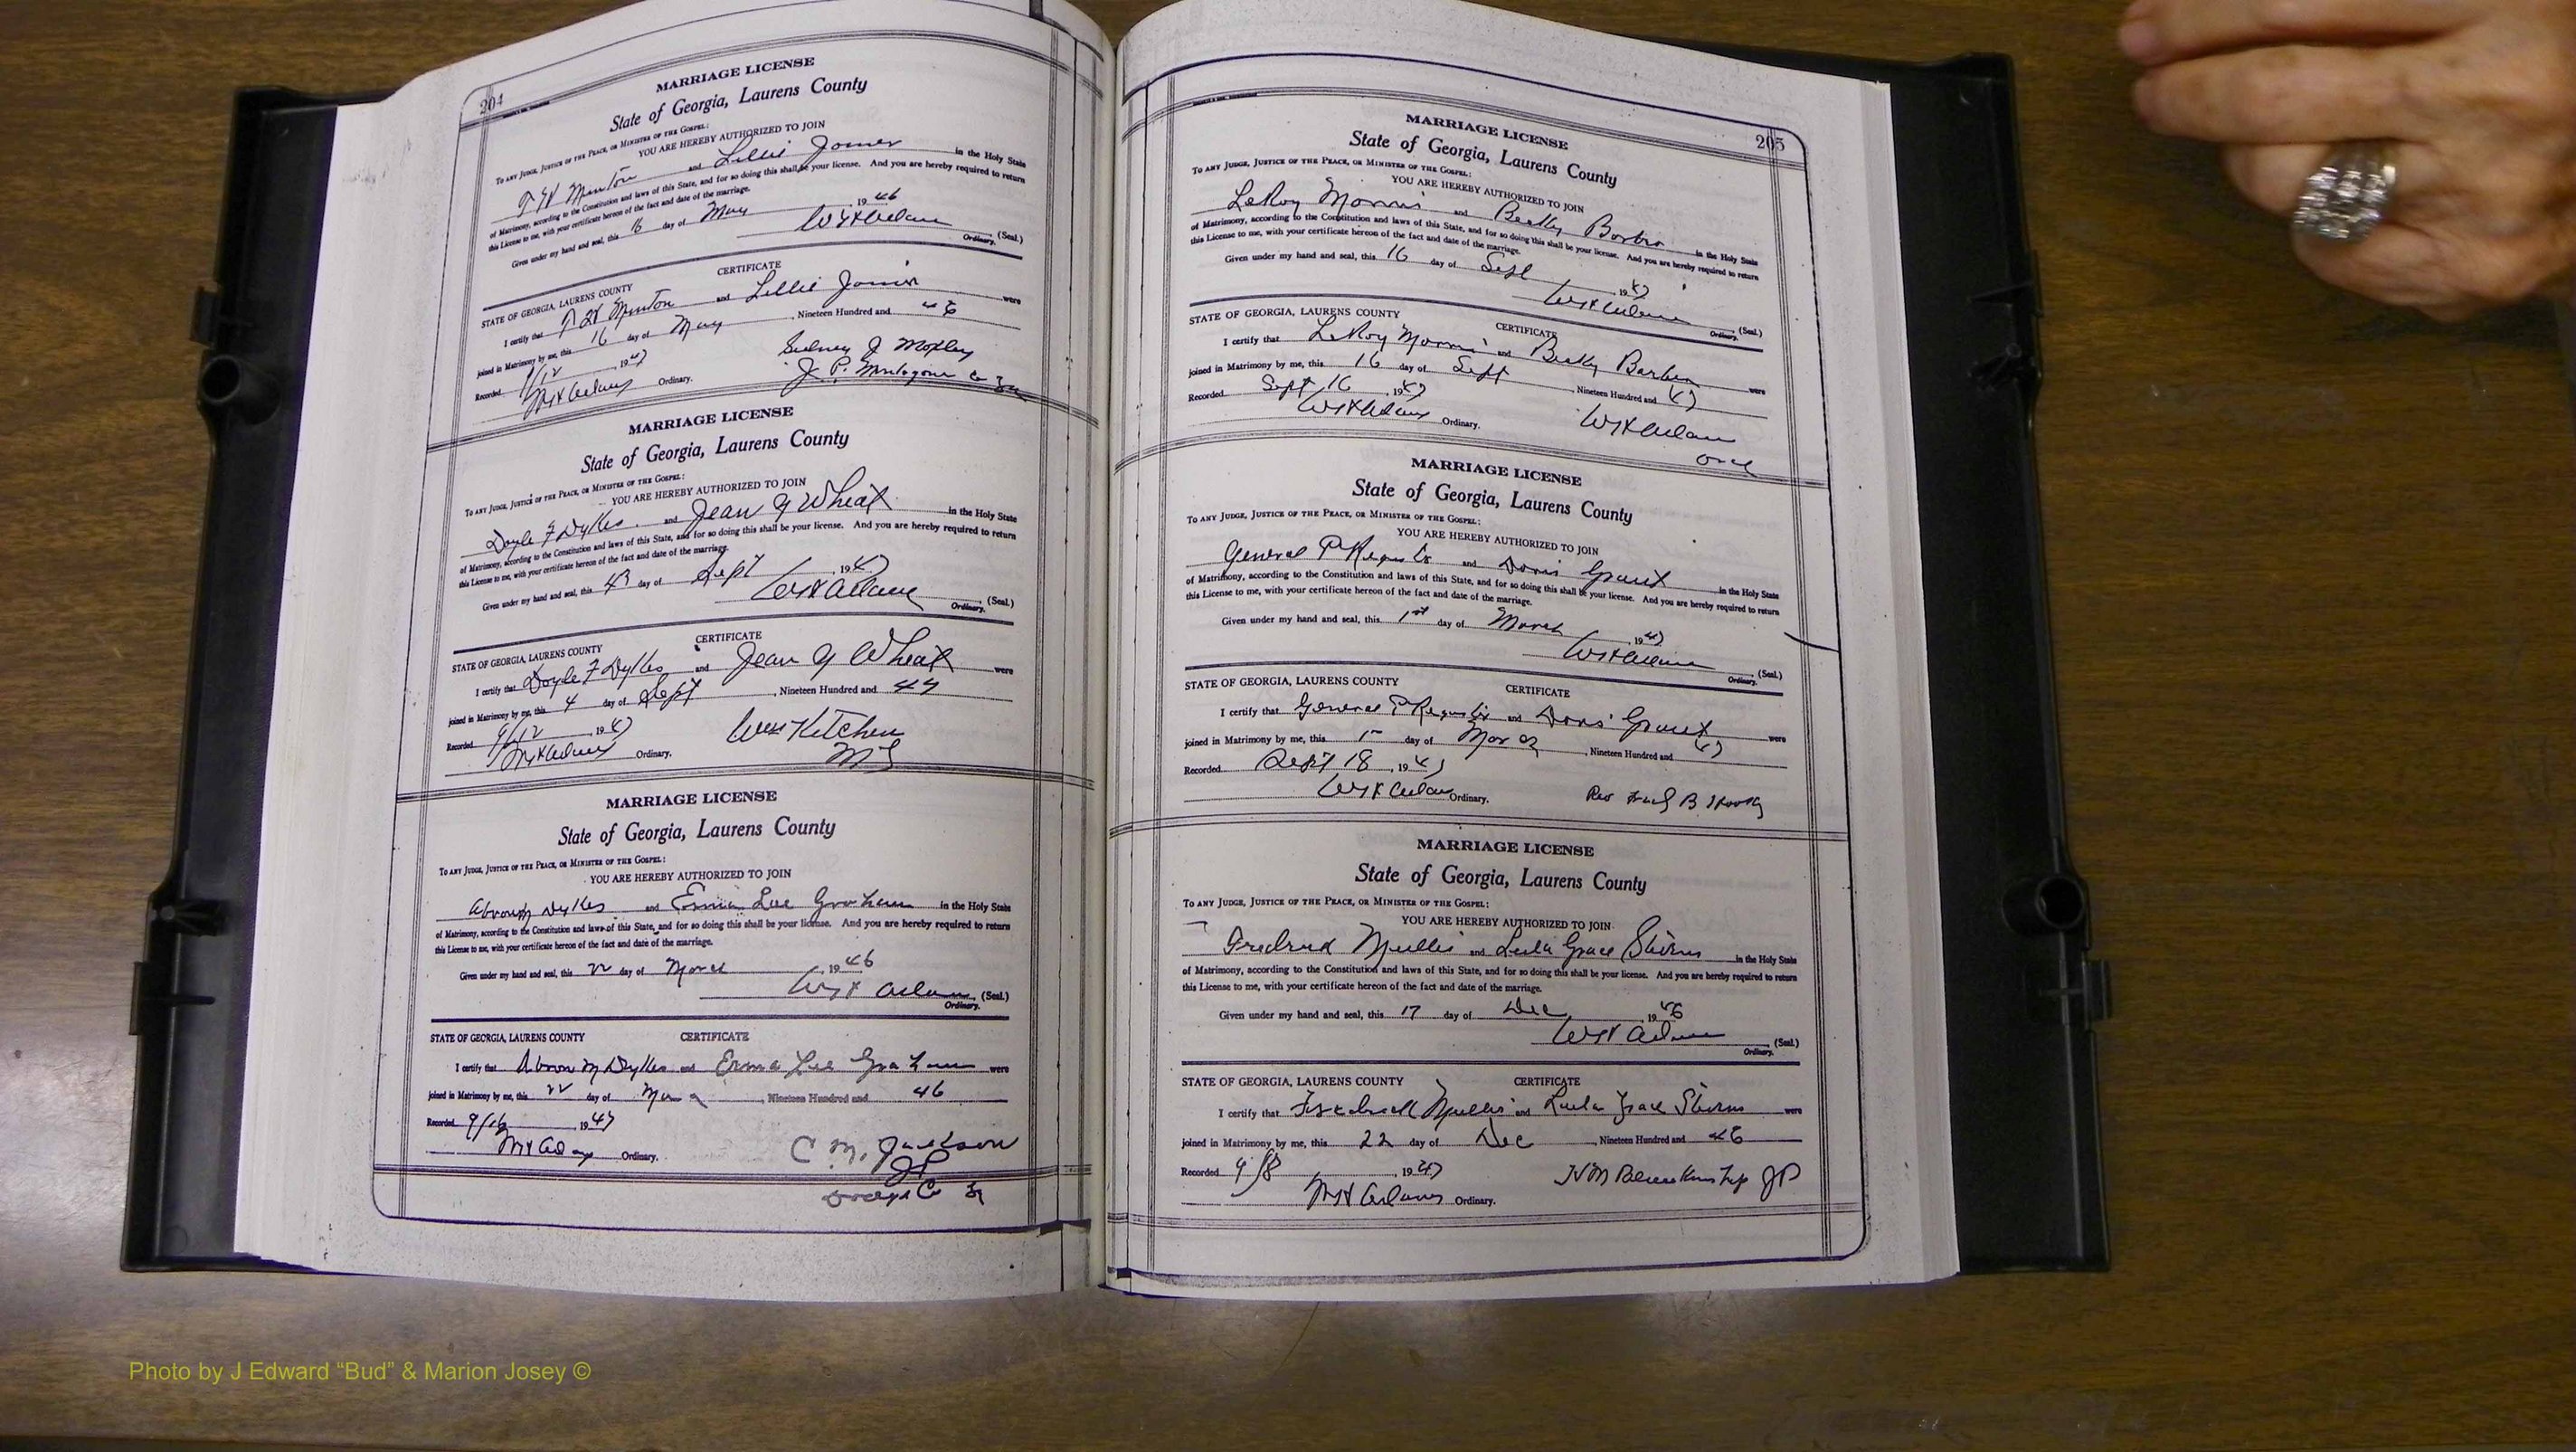 204
MARRIAGE LICENSE
State of Georgia, Laurens County
TO ANY JUDGE, JUSTICE OF THE PEACE, OR MINISTER OF THE GOSPEL:
YOU ARE HEREBY AUTHORIZED TO JOIN
Minton and Lillie Joiner in the Holy State
of Matrimony, according to the Constitution and laws of this State, and for so doing this shall be your license. And you are hereby required to return
this License to me, with your certificate hereon of the fact and date of the marriage.
Given under my hand and seal, this 16 day of May 19 46
(Seal.)
Ordinary.
CERTIFICATE
STATE OF GEORGIA, LAURENS COUNTY
I certify that Minton and Lillie Joiner were
joined in Matrimony by me, this 16 day of May, Nineteen Hundred and 46
Recorded 9/12, 1947
Ordinary.
Sidney J
J. P.
MARRIAGE LICENSE
State of Georgia, Laurens County
TO ANY JUDGE, JUSTICE OF THE PEACE, OR MINISTER OF THE GOSPEL:
YOU ARE HEREBY AUTHORIZED TO JOIN
Doyle F Dykes and Jean Y Wheat in the Holy State
of Matrimony, according to the Constitution and laws of this State, and for so doing this shall be your license. And you are hereby required to return
this License to me, with your certificate hereon of the fact and date of the marriage.
Given under my hand and seal, this day of Sept 1947
(Seal.)
Ordinary.
CERTIFICATE
STATE OF GEORGIA, LAURENS COUNTY
I certify that Doyle F Dykes and Jean Y Wheat were
joined in Matrimony by me, this 4 day of Sept, Nineteen Hundred and 47
Recorded 9/12, 1947
Ordinary.
Kitchen
MG
MARRIAGE LICENSE
State of Georgia, Laurens County
TO ANY JUDGE, JUSTICE OF THE PEACE, OR MINISTER OF THE GOSPEL:
YOU ARE HEREBY AUTHORIZED TO JOIN
Dykes and Erma Lee Graham in the Holy State
of Matrimony, according to the Constitution and laws of this State, and for so doing this shall be your license. And you are hereby required to return
this License to me, with your certificate hereon of the fact and date of the marriage.
Given under my hand and seal, this 22 day of March, 19 46
(Seal.)
Ordinary.
STATE OF GEORGIA, LAURENS COUNTY CERTIFICATE
I certify that M Dykes and Erma Lee Graham were
joined in Matrimony by me, this 22 day of, Nineteen Hundred and 46
Recorded 9/16, 1947
Ordinary.
C M. Jackson
JP
205
MARRIAGE LICENSE
State of Georgia, Laurens County
TO ANY JUDGE, JUSTICE OF THE PEACE, OR MINISTER OF THE GOSPEL:
YOU ARE HEREBY AUTHORIZED TO JOIN
LeRoy Morris and Becky in the Holy State
of Matrimony, according to the Constitution and laws of this State, and for so doing this shall be your license. And you are hereby required to return
this License to me, with your certificate hereon of the fact and date of the marriage.
Given under my hand and seal, this 16 day of Sept, 1947
(Seal.)
Ordinary.
STATE OF GEORGIA, LAURENS COUNTY CERTIFICATE
I certify that LeRoy Morris and Becky were
joined in Matrimony by me, this 16 day of Sept, Nineteen Hundred and 47
Recorded Sept 16, 1947
Ordinary.
MARRIAGE LICENSE
State of Georgia, Laurens County
TO ANY JUDGE, JUSTICE OF THE PEACE, OR MINISTER OF THE GOSPEL:
YOU ARE HEREBY AUTHORIZED TO JOIN
General P and Doris Grant in the Holy State
of Matrimony, according to the Constitution and laws of this State, and for so doing this shall be your license. And you are hereby required to return
this License to me, with your certificate hereon of the fact and date of the marriage.
Given under my hand and seal, this 1st day of March, 1947
(Seal.)
Ordinary.
STATE OF GEORGIA, LAURENS COUNTY CERTIFICATE
I certify that General P and Doris Grant were
joined in Matrimony by me, this day of, Nineteen Hundred and 47
Recorded Sept 18, 1947
Ordinary.
Rev B
MARRIAGE LICENSE
State of Georgia, Laurens County
TO ANY JUDGE, JUSTICE OF THE PEACE, OR MINISTER OF THE GOSPEL:
YOU ARE HEREBY AUTHORIZED TO JOIN
Mullis and Leula Grace in the Holy State
of Matrimony, according to the Constitution and laws of this State, and for so doing this shall be your license. And you are hereby required to return
this License to me, with your certificate hereon of the fact and date of the marriage.
Given under my hand and seal, this 17 day of Dec, 1946
(Seal.)
Ordinary.
STATE OF GEORGIA, LAURENS COUNTY CERTIFICATE
I certify that Mullis and Leula Grace were
joined in Matrimony by me, this 22 day of Dec, Nineteen Hundred and 46
Recorded 9/8, 1947
Ordinary.
JP
Photo by J Edward “Bud” & Marion Josey ©